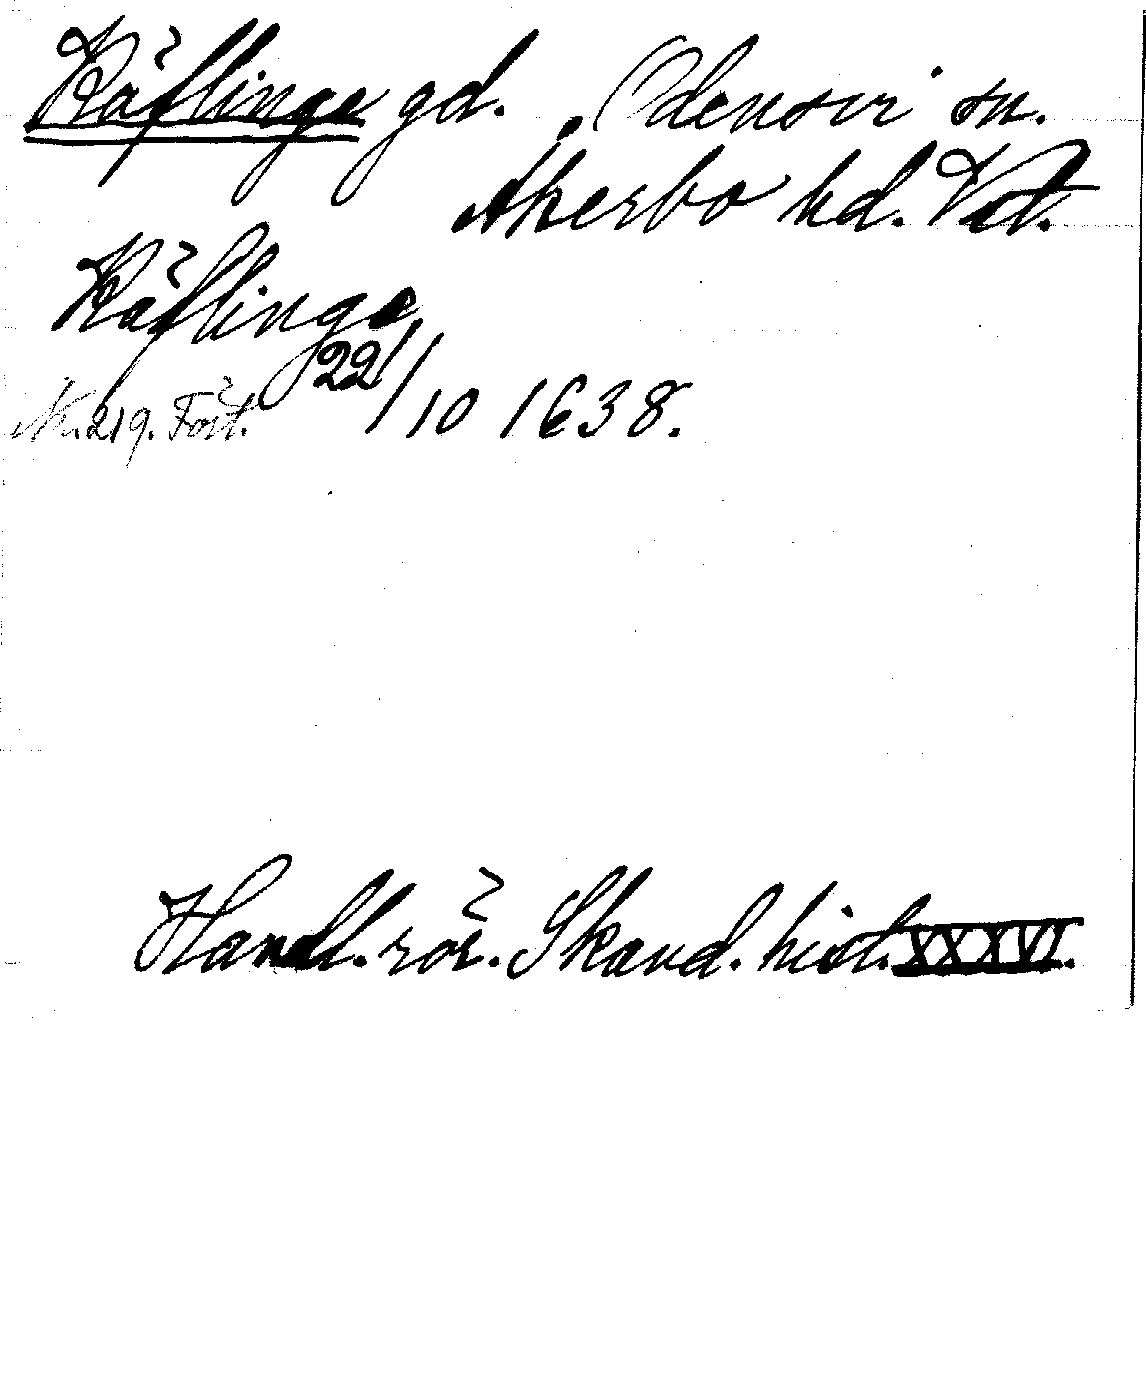 Räflinge gd. Odensvi sn.
Åkerbo hd. Vstm.
Räflinge
22/10 1638.
Nr. 219. Fört.
Handl. rör. Skand. hist. XXXVI.